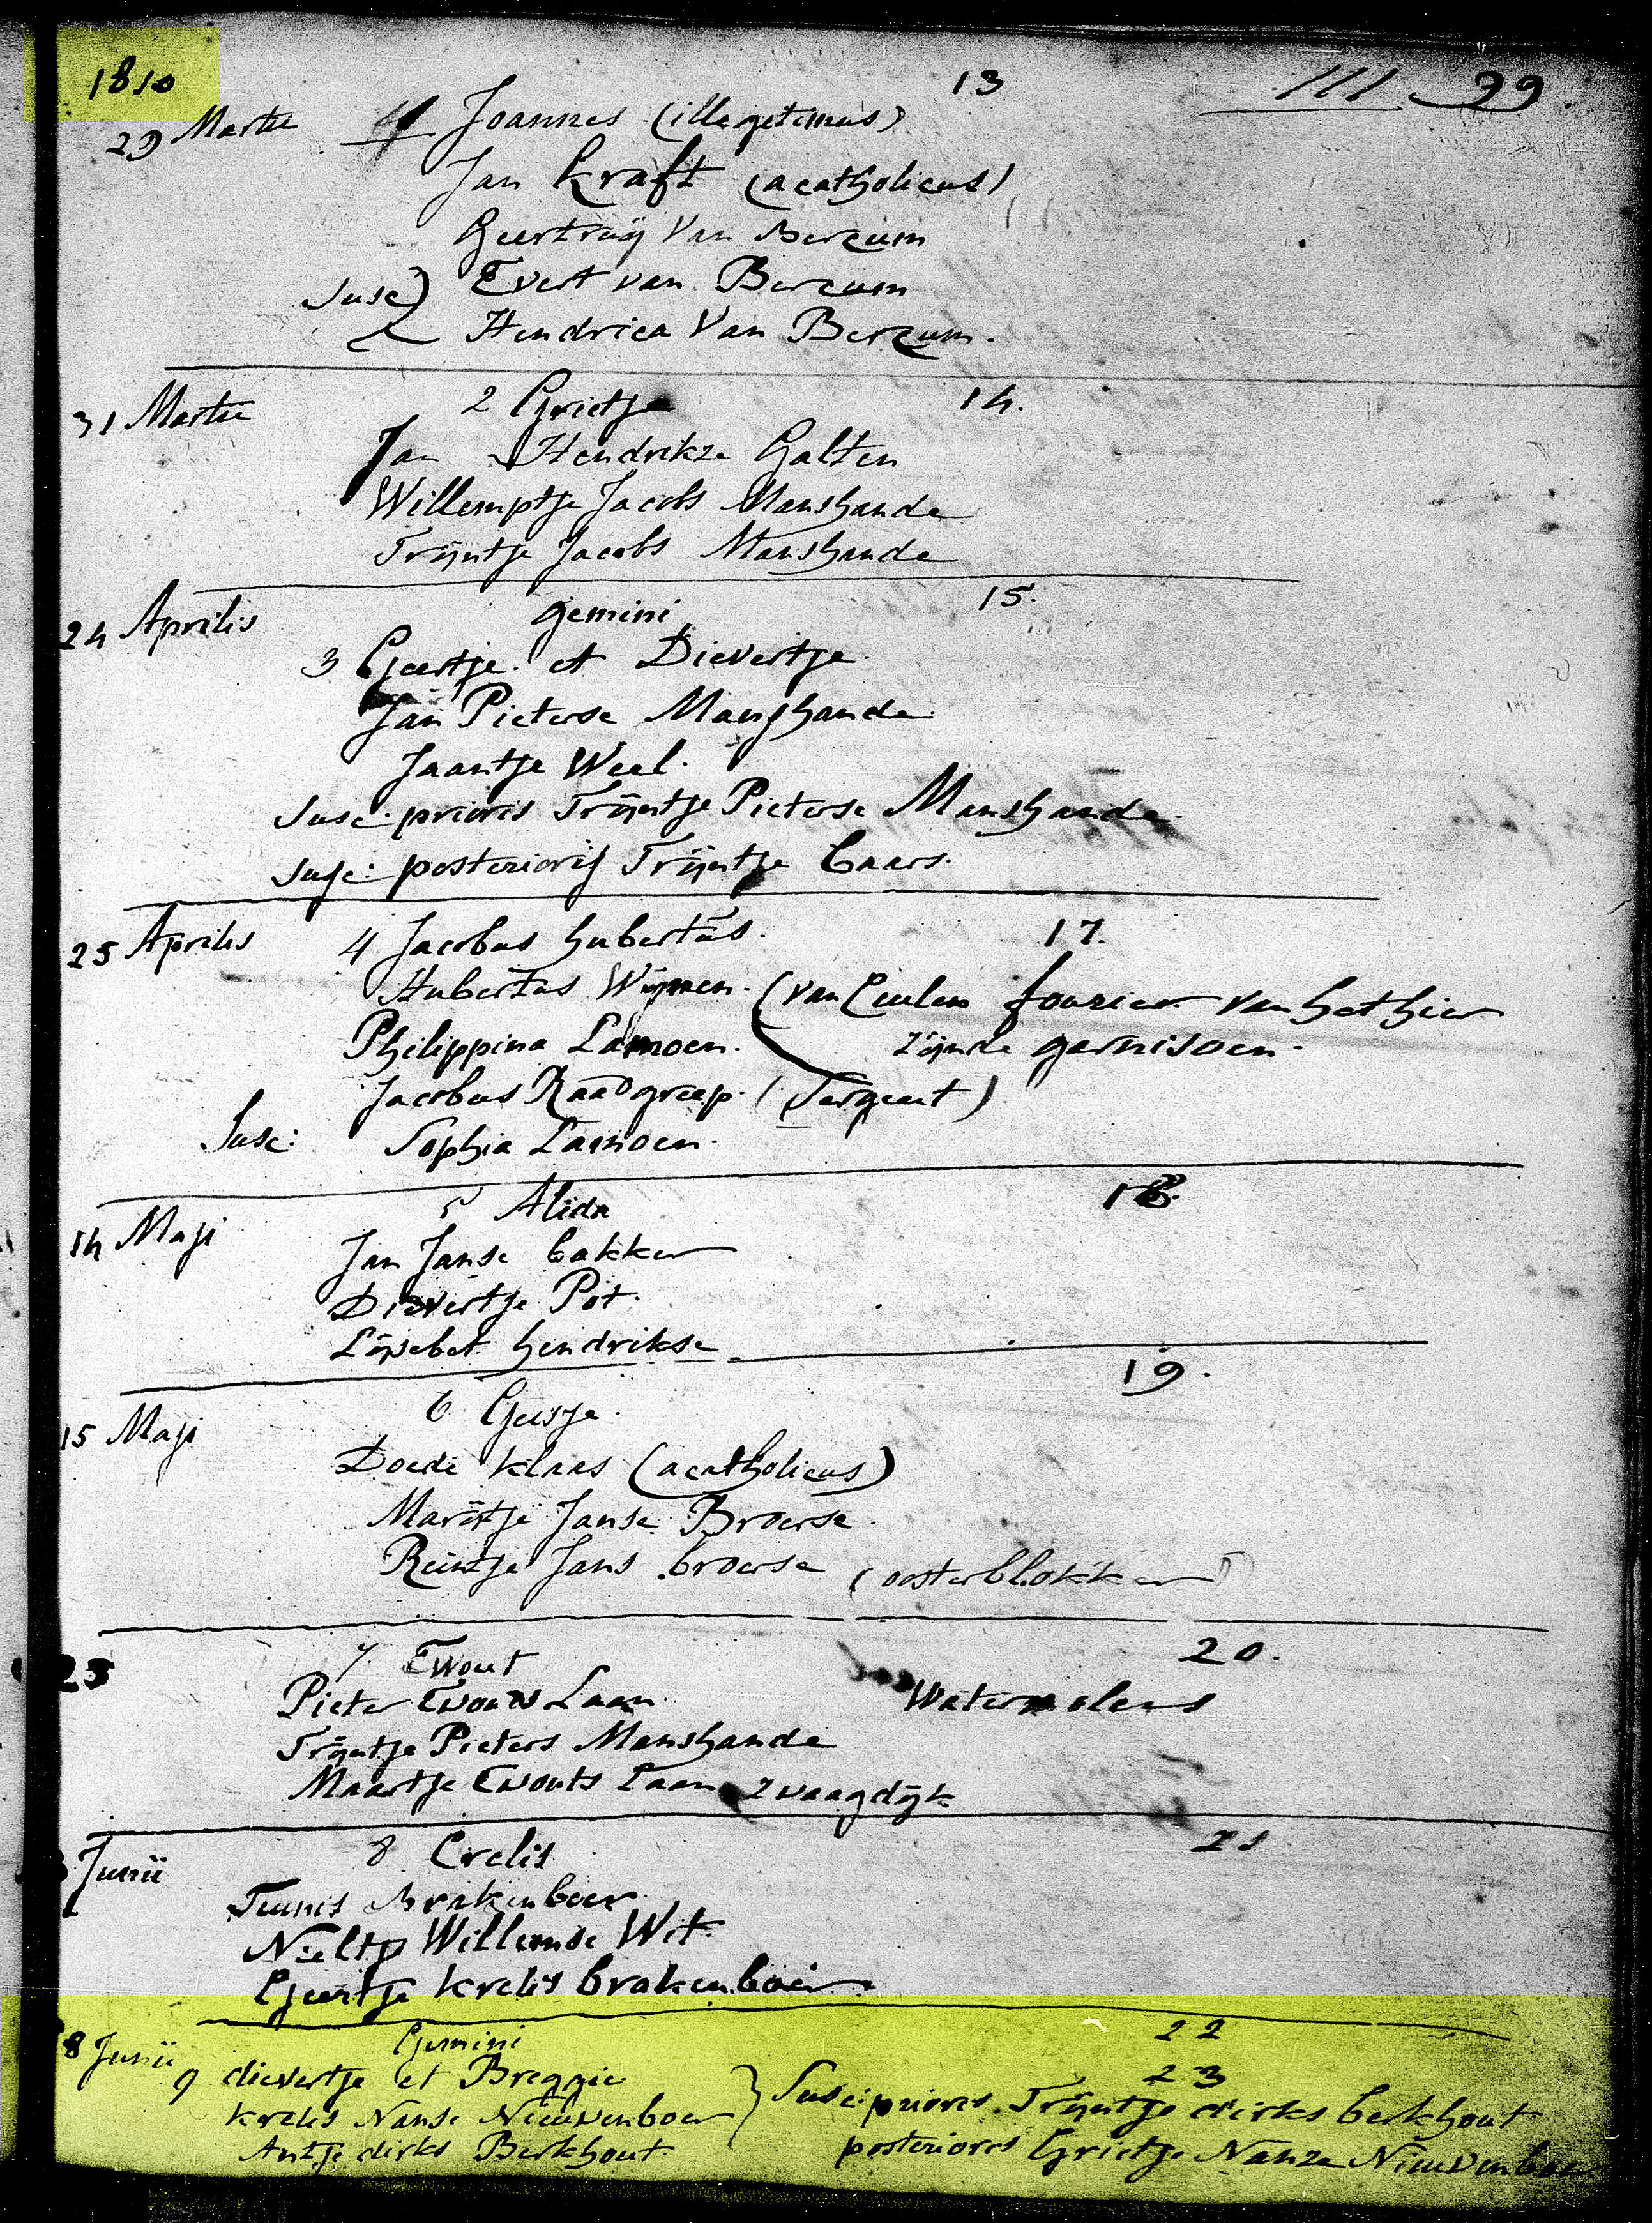 1810 13 111 99
29 Martii 1 Joannes (illegetimus)
Jan Kraft (acatholicus)
Geertruij Van Berzum
Susc) Evert van Berzum
Hendrica Van Berzum.
31 Martii 2 Grietje 14.
Jan Hendrikze Galten
Willemptje Jacobs Manshande
Trijntje Jacobs Manshande
24 Aprilis gemini 15.
3 Geertje et Dievertje
Jan Pieterse Manshande
Jaantje Weel.
Susc. prioris Trijntje Pieterse Manshande
Susc: posterioris Trijntje Baars.
25 Aprilis 4 Jacobus hubertus. 17.
Hubertus Wijnen. (van Ceulen fourier van het hier
Philippina Lamoen. zijnde garnisoen.
Jacobus Raadgreep. (Sergeent)
Susc: Sophia Lamoen.
14 Maji 5 Alida 18.
Jan Janse bakker
Dievertje Pot.
Lijsebet hendrikse
19.
15 Maji 6 Geisje.
Doede Klaas (acatholicus)
Marijtje Janse Broerse.
Reintje Jans broerse (oosterblokker)
25 7 Ewout 20.
Pieter Ewouts Laan Watermolens
Trijntje Pieters Manshande
Maartje Ewouts Laan Zwaagdijk
Junii 8 Crelis 21
Teunis Brakenboer.
Neeltje Willemse Wit.
Geertje Krelis brakenboer
8 Junii Gemini 22
9 dievertje et Breggie 23
Krelis Nanse Nieuwenboer } Susc: priores. Trijntje dirks berkhout
Antje dirks Berkhout posteriores Grietje Nanze Nieuwenboer